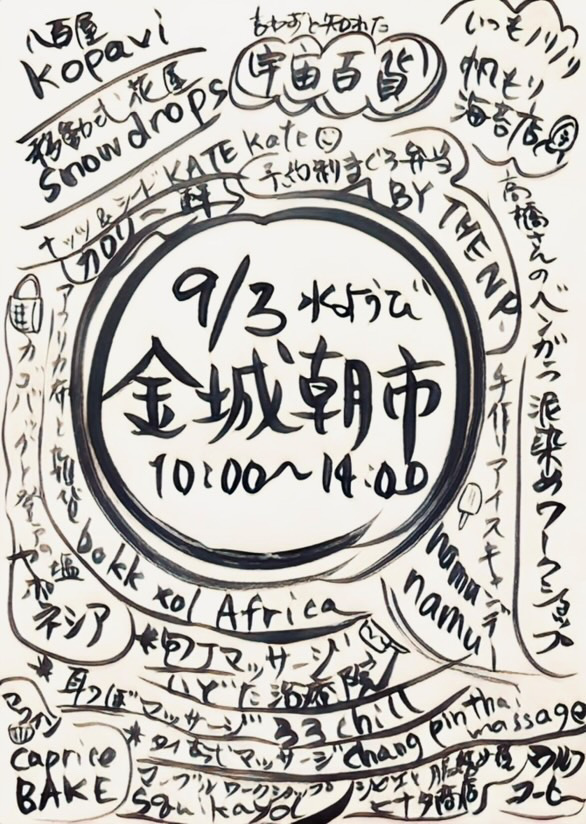 八百屋
kopavi
移動式花屋
snowdrops
宇宙百貨
いつもノリノリ
帆もり
海苔店
ナッツ&シード KATE kate
カロリー
予約制まぐろ弁当
BY THENK
高橋さんのベンガラ泥染めワークショップ
手作りアイスキャンデー
namu
namu
9/3 水ようび
金城朝市
10:00~14:00
アフリカ布と雑貨
bokk xol Africa
カゴバッグと
の塩
ヤポ
ネシア
*包丁マッサージ
いどた治療院
*耳つぼマッサージ 33chill
*タイ古式マッサージ chang pinthai massage
マフィン
caprice
BAKE
マーブルワークショップ
ジビエと
七十夕商店
ウルフ
コーヒー